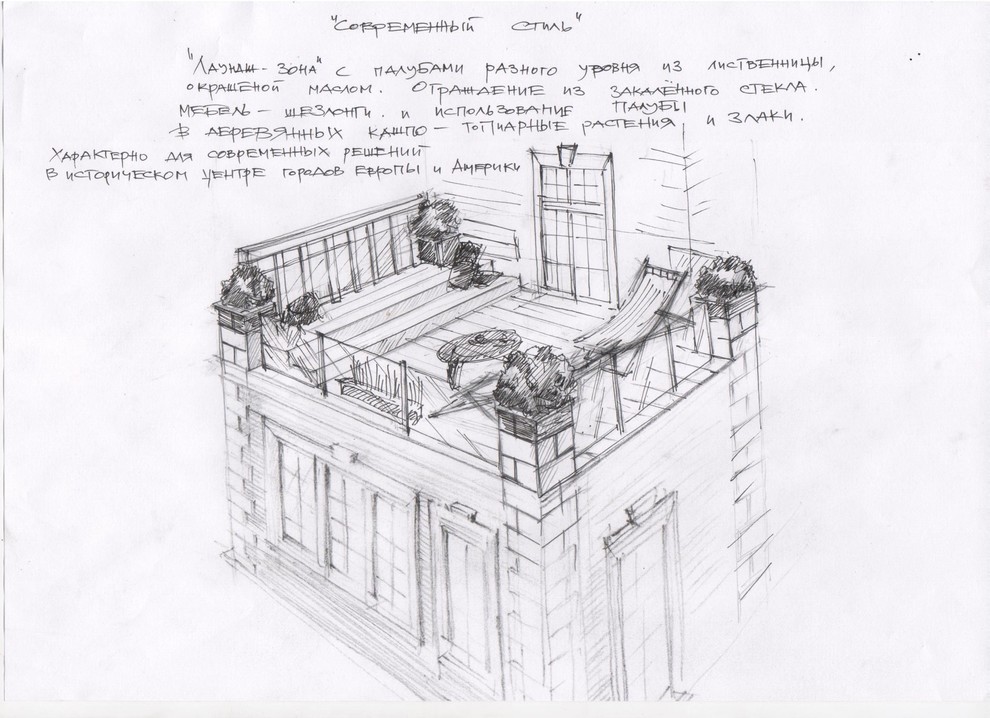 "Современный стиль"
"Лаундж-зона" с палубами разного уровня из лиственницы,
окрашеной маслом. Ограждение из закалённого стекла.
Мебель – шезлонги. и использование палубы
в деревянных кашпо – топиарные растения и злаки.
Характерно для современных решений
в историческом центре городов Европы и Америки